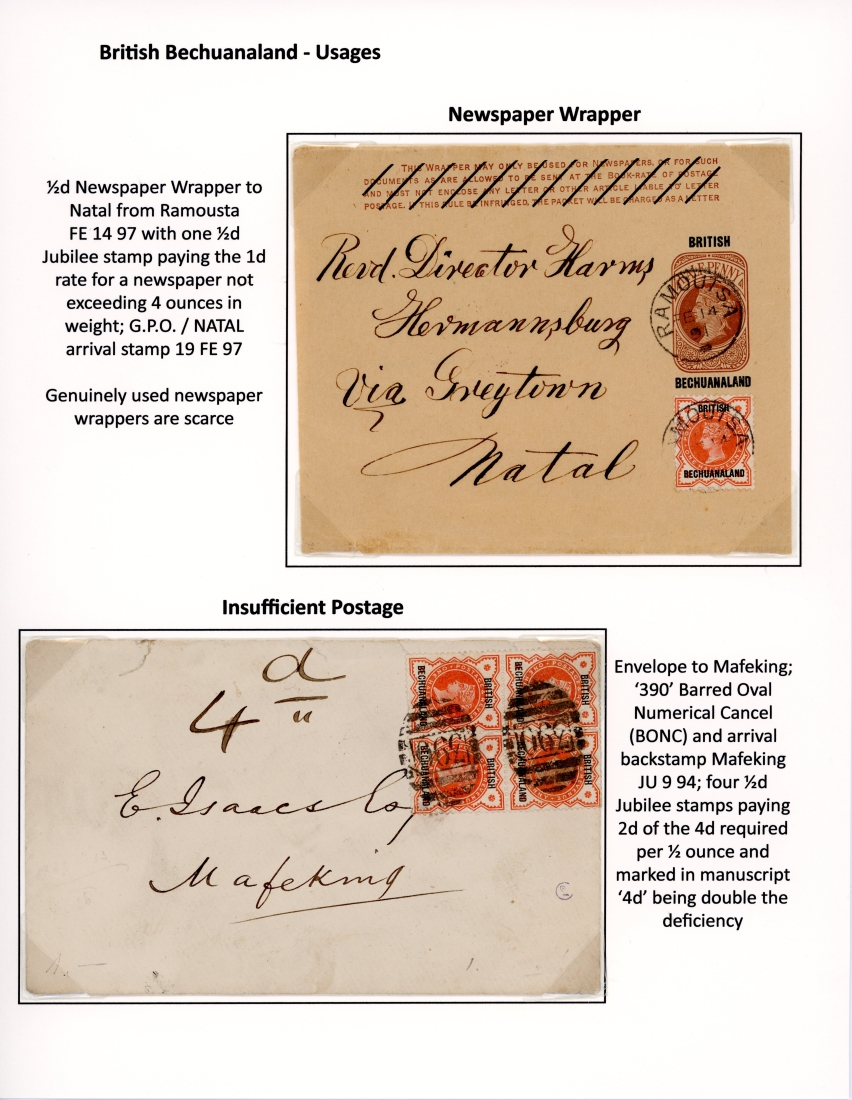 British Bechuanaland - Usages
Newspaper Wrapper
½d Newspaper Wrapper to
Natal from Ramousta
FE 14 97 with one ½d
Jubilee stamp paying the 1d
rate for a newspaper not
exceeding 4 ounces in
weight; G.P.O. / NATAL
arrival stamp 19 FE 97
Genuinely used newspaper
wrappers are scarce
THIS WRAPPER MAY ONLY BE USED FOR NEWSPAPERS, OR FOR SUCH
DOCUMENTS AS ARE ALLOWED TO BE SENT AT THE BOOK-RATE OF POSTAGE
AND MUST NOT ENCLOSE ANY LETTER OR OTHER ARTICLE LIABLE TO LETTER
POSTAGE. IF THIS RULE BE INFRINGED, THE PACKET WILL BE CHARGED AS A LETTER
BRITISH
PENNY
RAMOUTSA
14
BECHUANALAND
Revd. Director Harms
Hermannsburg
Via Greytown
Natal
BRITISH
MOUTSA
BECHUANALAND
Insufficient Postage
4d
E. Isaacs Co,
Mafeking
BECHUANALAND
BRITISH
BECHUANALAND
BRITISH
BECHUANALAND
BRITISH
BECHUANALAND
BRITISH
390
390
Envelope to Mafeking;
‘390’ Barred Oval
Numerical Cancel
(BONC) and arrival
backstamp Mafeking
JU 9 94; four ½d
Jubilee stamps paying
2d of the 4d required
per ½ ounce and
marked in manuscript
‘4d’ being double the
deficiency